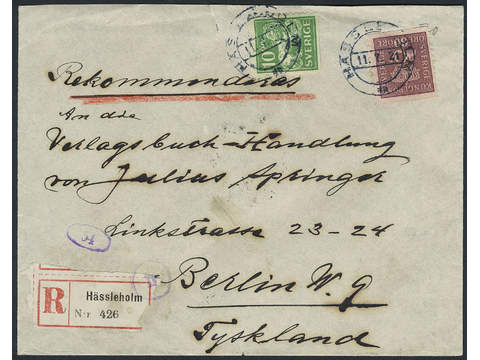 HÄSSLEHOLM
10
SVERIGE
HÄSSLEHOLM
11.7.21
SVERIGE
Rekommenderas
An die
Verlagsbuch-Handlung
von Julius Springer
Linkstrasse 23-24
Berlin W. 9
Tyskland
R
Hässleholm
N:r 426